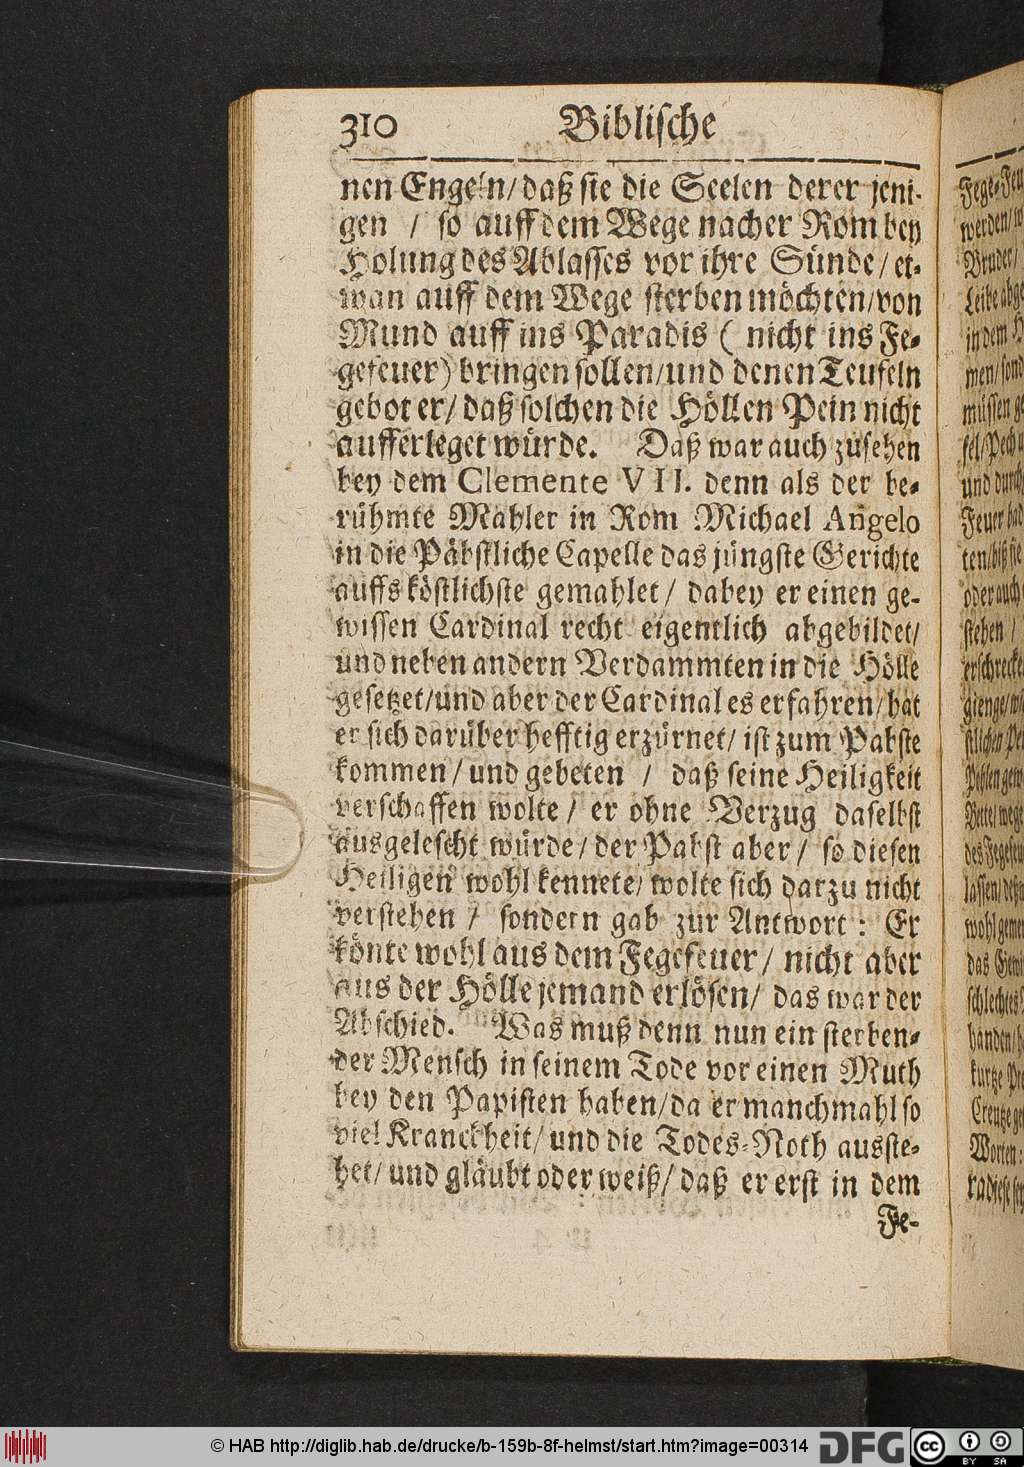 310 Biblische
nen Engeln/ daß sie die Seelen derer jeni-
gen / so auff dem Wege nacher Rom bey
Holung des Ablasses vor ihre Sünde/ et-
wan auff dem Wege sterben möchten/ von
Mund auff ins Paradis ( nicht ins Fe-
gefeuer) bringen sollen/ und denen Teufeln
gebot er/ daß solchen die Höllen Pein nicht
aufferleget würde. Daß war auch zusehen
bey dem Clemente VII. denn als der be-
rühmte Mahler in Rom Michael Angelo
in die Päbstliche Capelle das jüngste Gerichte
auffs köstlichste gemahlet/ dabey er einen ge-
wissen Cardinal recht eigentlich abgebildet/
und neben andern Verdammten in die Hölle
gesetzet/ und aber der Cardinal es erfahren/ hat
er sich darüber hefftig erzürnet/ ist zum Pabste
kommen/ und gebeten / daß seine Heiligkeit
verschaffen wolte/ er ohne Verzug daselbst
ausgelescht würde/ der Pabst aber/ so diesen
Heiligen wohl kennete/ wolte sich darzu nicht
verstehen / sondern gab zur Antwort: Er
könte wohl aus dem Fegefeuer/ nicht aber
aus der Hölle jemand erlösen/ das war der
Abschied. Was muß denn nun ein sterben-
der Mensch in seinem Tode vor einen Muth
bey den Papisten haben/ da er manchmahl so
viel Kranckheit/ und die Todes-Noth ausste-
het/ und gläubt oder weiß/ daß er erst in dem
Fe-
Fege-
werden/
Bruder/
Leibe
in dem
men/
müssen
und durch
Feuer
oder auch
stehen /
gienge/
lassen/
das
händen/
kurtze
Worten:
© HAB http://diglib.hab.de/drucke/b-159b-8f-helmst/start.htm?image=00314
DFG
cc BY SA